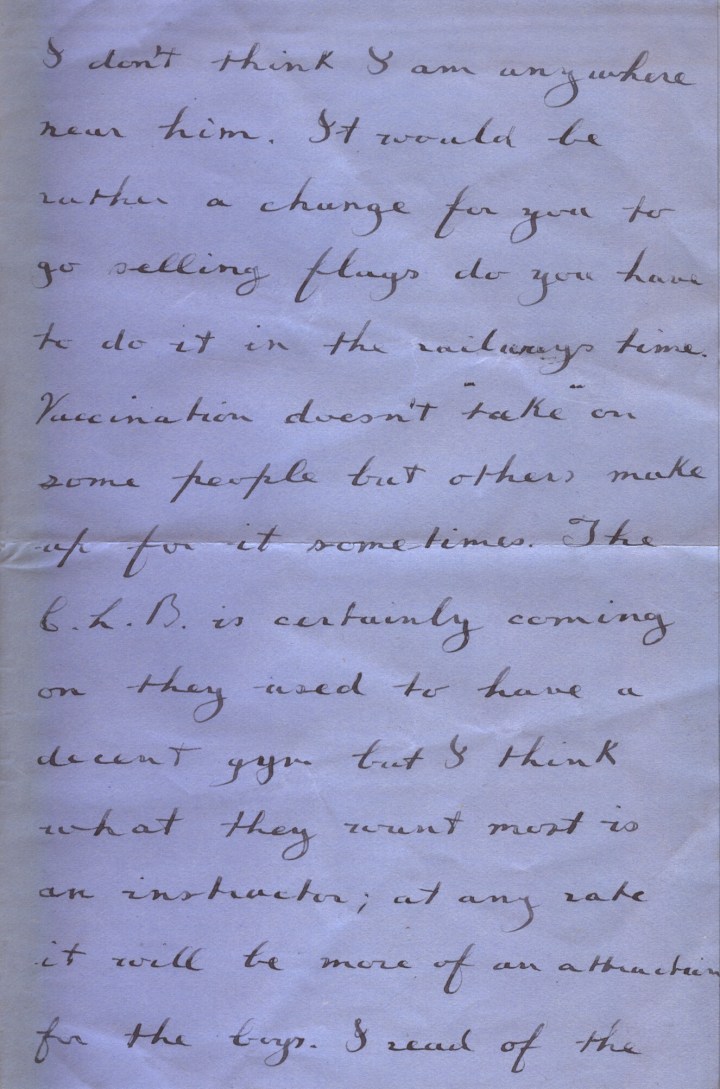 I don't think I am anywhere
near him. It would be
rather a change for you to
go selling flags do you have
to do it in the railways time.
Vaccination doesn't "take" on
some people but others make
up for it sometimes. The
C.L.B. is certainly coming
on they used to have a
decent gym but I think
what they want most is
an instructor; at any rate
it will be more of an attraction
for the boys. I read of the